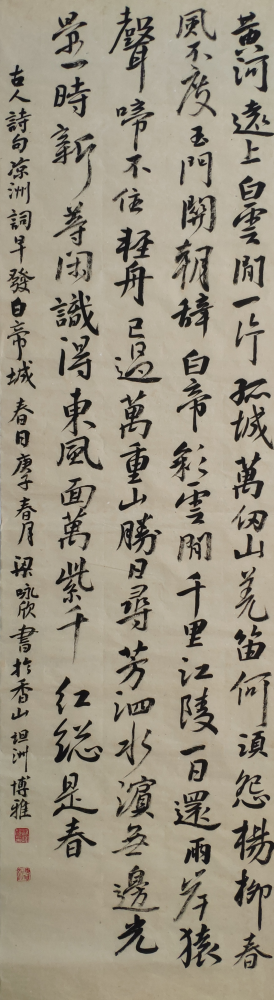 黃河遠上白雲間一片孤城萬仞山羌笛何須怨楊柳春
風不度玉門關朝辭白帝彩雲間千里江陵一日還兩岸猿
聲啼不住輕舟已過萬重山勝日尋芳泗水濱無邊光
景一時新等閑識得東風面萬紫千紅總是春
古人詩句涼洲詞早發白帝城春日庚子春月梁詠欣書於香山坦洲博雅